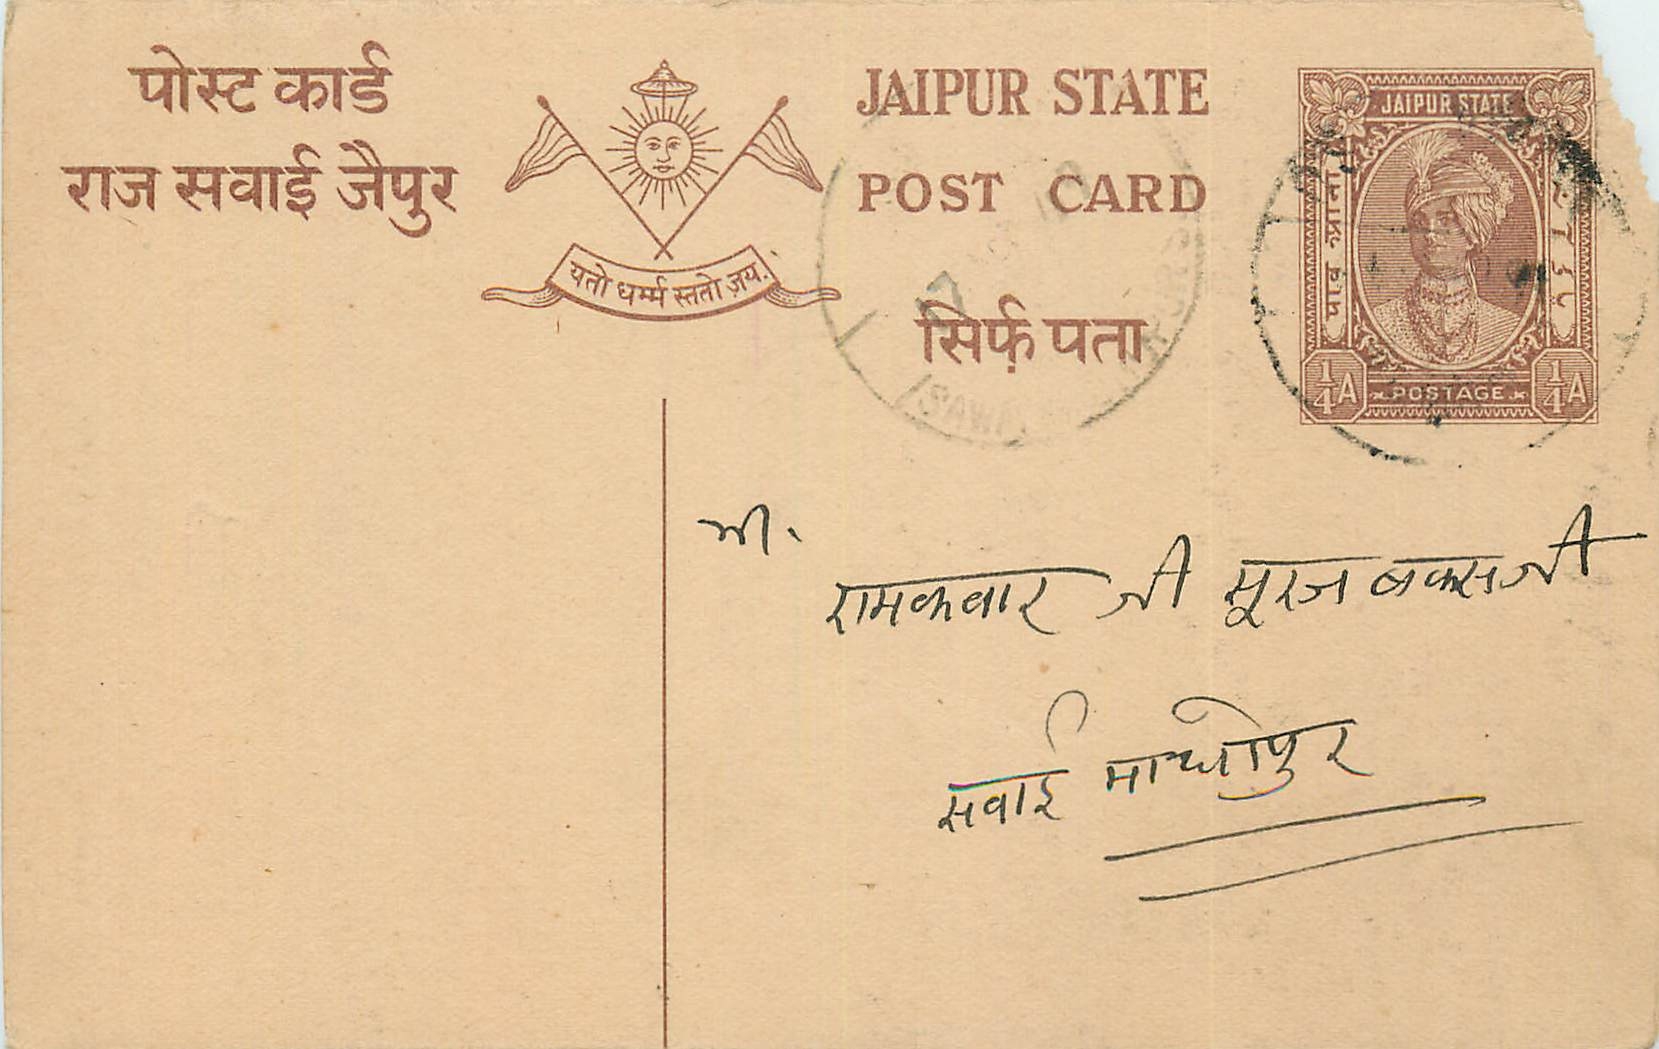 पोस्ट कार्ड
राज सवाई जैपुर
यतो धर्म्म स्ततो जय.
JAIPUR STATE
POST CARD
सिर्फ़ पता
JAIPUR STATE
पाव आना
¼A POSTAGE ¼A
SAWAI
रामकवार जी सूरज बकसजी
सवाई माधोपुर